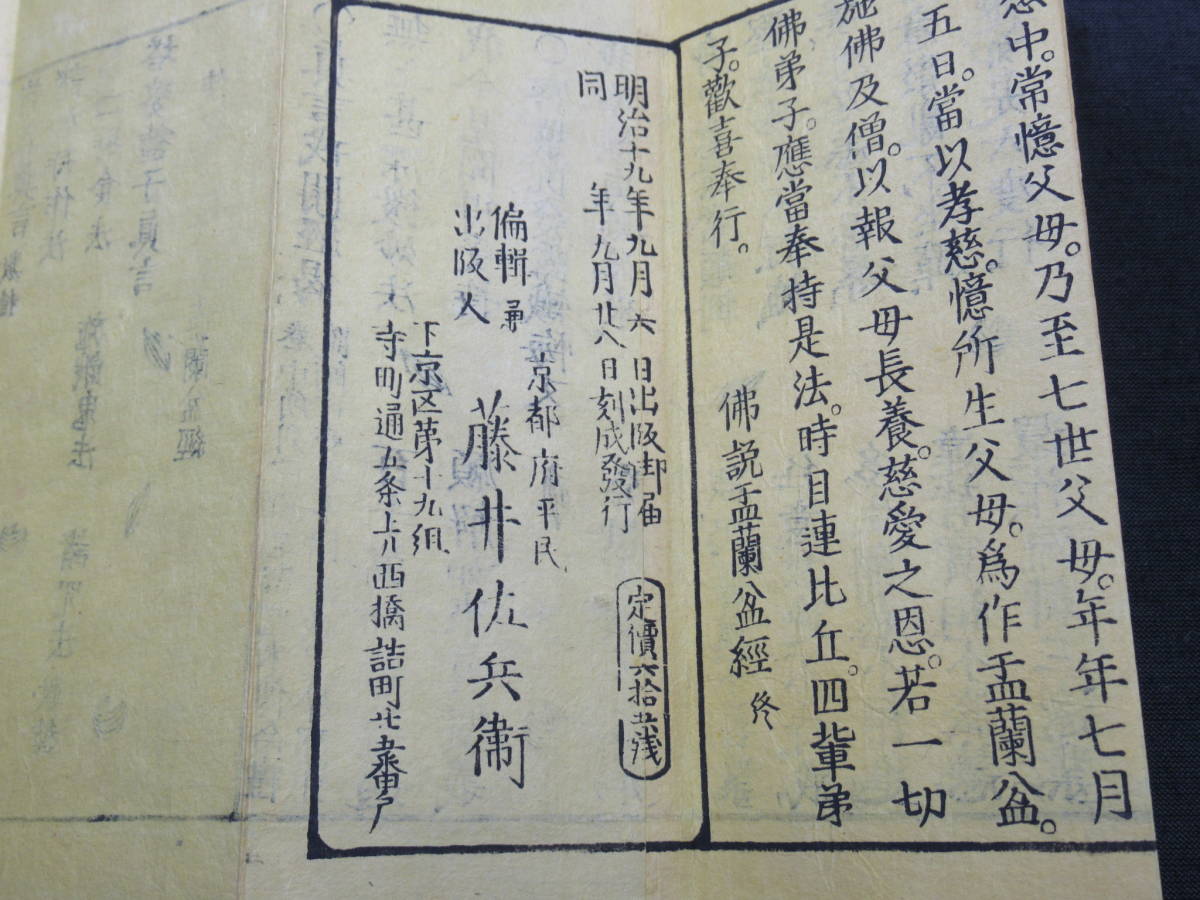 慈中。常憶父母。乃至七世父母。年年七月
五日。當以孝慈。憶所生父母。爲作盂蘭盆。
施佛及僧。以報父母長養。慈愛之恩。若一切
佛弟子。應當奉持是法。時目連比丘。四輩弟
子。歡喜奉行。
佛説盂蘭盆經 終
明治十九年九月六日出版御届
同 年九月廿八日刻成發行
定價六拾
偏輯兼
出版人
京都府平民
藤井佐兵衛
下京区第十九組
寺町通五条上ル西橋詰町廿五番戸